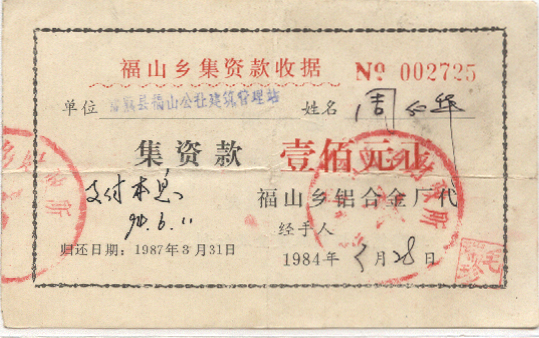 福山乡集资款收据 № 002725
单位 福山公社建筑管理站 姓名 周
集资款 壹佰元正
支付本息 福山乡铝合金厂代
90.6.11 经手人
归还日期:1987年3月31日 1984年3月28日